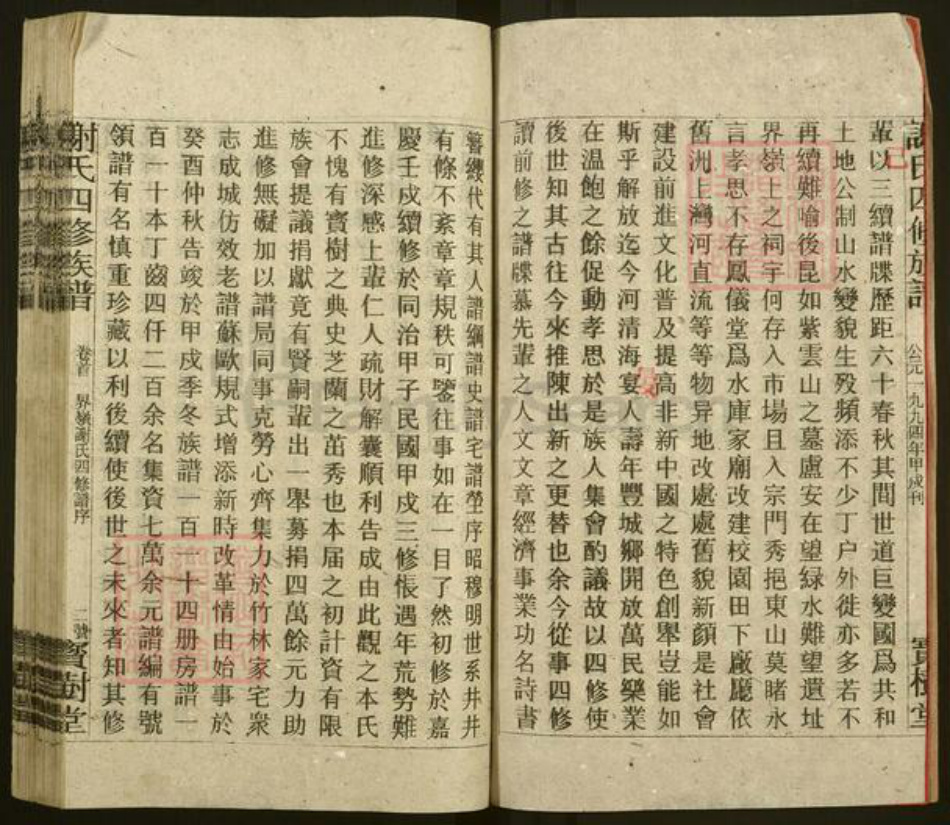 謝氏四修族譜
公元一九九四年甲戌刊
寶樹堂
輩以三續譜牒歷距六十春秋其間世道巨變國爲共和
土地公制山水變貌生殁頻添不少丁户外徙亦多若不
再續難喻後昆如紫雲山之墓盧安在望緑水難望遺址
界嶺上之祠宇何存入市場且入宗門秀挹東山莫睹永
言孝思不存鳳儀堂爲水庫家廟改建校園田下廠廳依
舊洲上灣河直流等等物异地改處處舊貌新顏是社會
建設前進文化普及提高非新中國之特色創舉豈能如
斯乎解放迄今河清海宴人壽年豐城鄉開放萬民樂業
在温飽之餘促動孝思於是族人集會酌議故以四修使
後世知其古往今來推陳出新之更替也余今從事四修
讀前修之譜牒慕先輩之人文文章經濟事業功名詩書
簪纓代有其人譜綱譜史譜宅譜塋序昭穆明世系井井
有條不紊章章規秩可鑒往事如在一目了然初修於嘉
慶壬戍續修於同治甲子民國甲戍三修悵遇年荒勢難
進修深感上輩仁人疏財解囊順利告成由此觀之本氏
不愧有寶樹之典史芝蘭之茁秀也本届之初計資有限
族會提議捐獻竟有賢嗣輩出一舉募捐四萬餘元力助
進修無礙加以譜局同事克勞心齊集力於竹林家宅衆
志成城仿效老譜蘇歐規式增添新時改革情由始事於
癸酉仲秋告竣於甲戌季冬族譜一百一十四册房譜一
百一十本丁齒四仟二百余名集資七萬余元譜編有號
領譜有名慎重珍藏以利後續使後世之未來者知其修
謝氏四修族譜
卷首
界嶺謝氏四修譜序
二號
寶樹堂